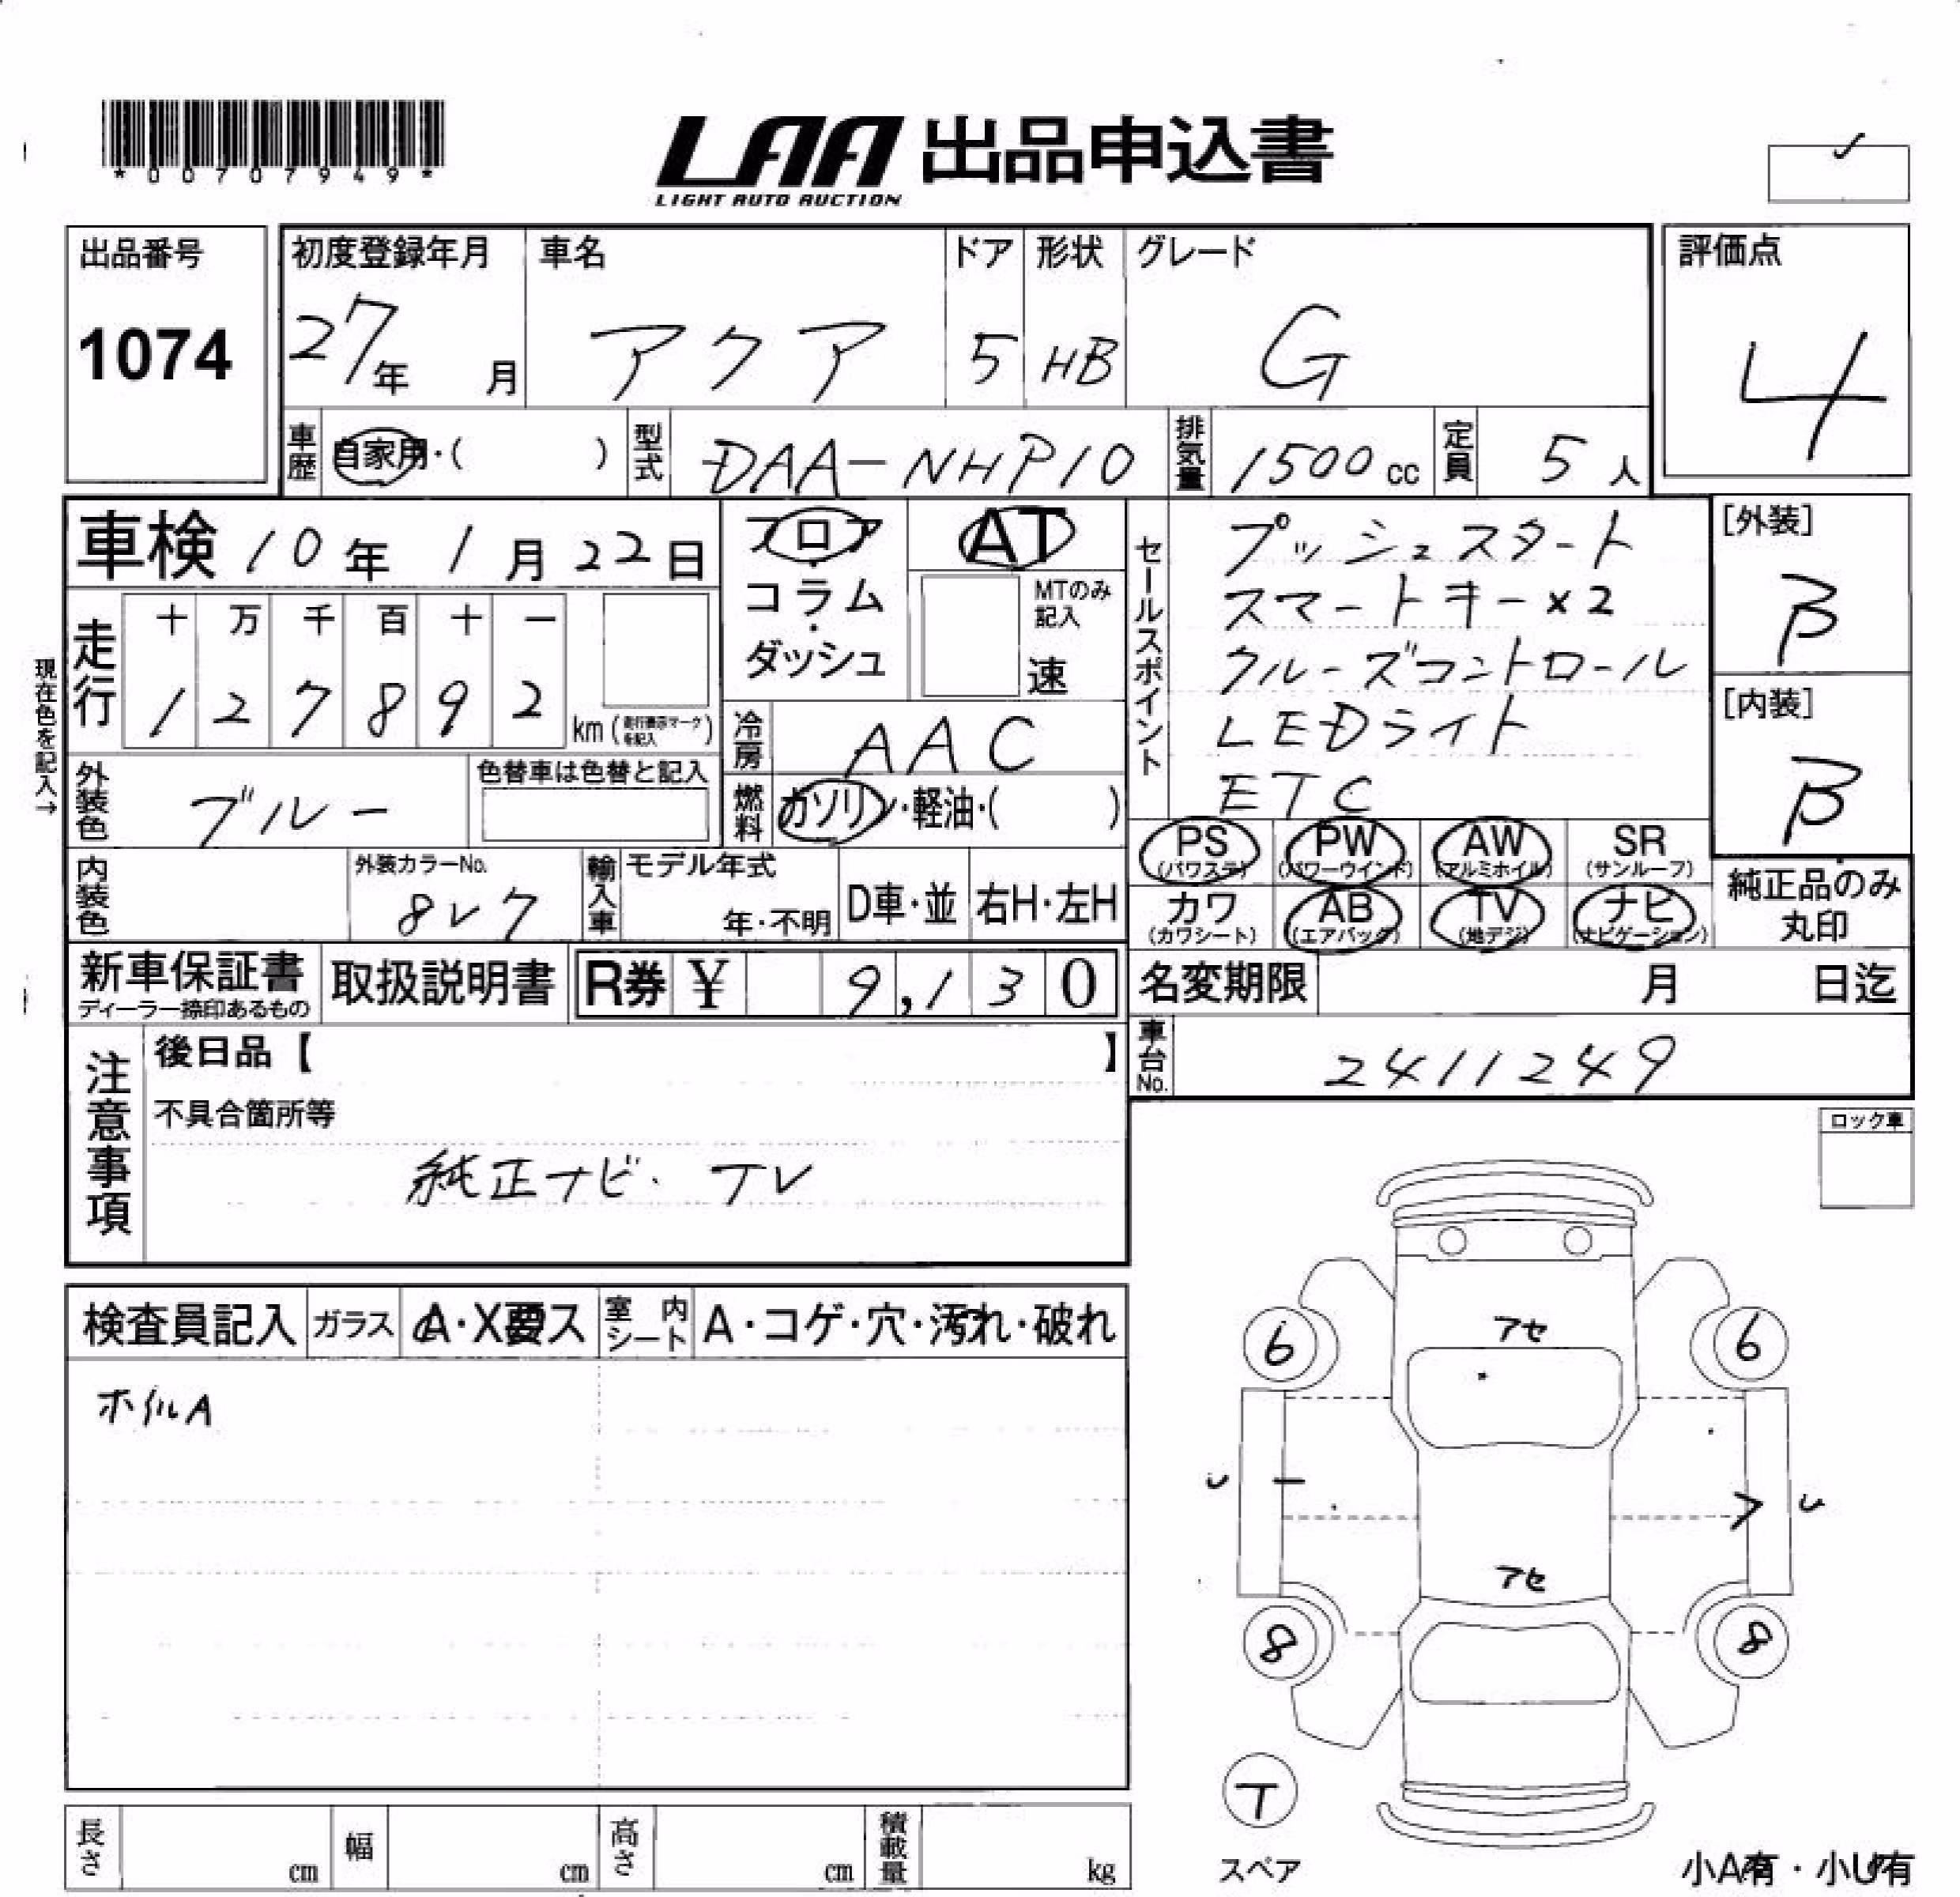 *00707949*
LAA 出品申込書
LIGHT AUTO AUCTION
出品番号
1074
初度登録年月
27年 月
車名
アクア
ドア
5
形状
HB
グレード
G
評価点
4
車歴
自家用・( )
型式
DAA-NHP10
排気量
1500cc
定員
5人
車検 10年 1月 22日
フロア
・
コラム
・
ダッシュ
AT
MTのみ
記入
速
セールスポイント
プッシュスタート
スマートキー×2
クルーズコントロール
LEDライト
ETC
[外装]
B
[内装]
B
現在色を記入→
走行
十 万 千 百 十 一
1 2 7 8 9 2
km(走行表示マークを記入)
冷房
AAC
燃料
ガソリン・軽油・( )
外装色
ブルー
色替車は色替と記入
内装色
外装カラーNo.
8V7
輸入車
モデル年式
年・不明
D車・並
右H・左H
PS
(パワステ)
PW
(パワーウインド)
AW
(アルミホイル)
SR
(サンルーフ)
カワ
(カワシート)
AB
(エアバック)
TV
(地デジ)
ナビ
(ナビゲーション)
純正品のみ
丸印
新車保証書
ディーラー捺印あるもの
取扱説明書
R券 ¥ 9,130
名変期限 月 日迄
車台No.
2411249
注意事項
後日品【 】
不具合箇所等
純正ナビ・TV
ロック車
検査員記入 ガラス A・X要ス 室内シート A・コゲ・穴・汚れ・破れ
ホイルA
アセ
6
6
U
U
アセ
8
8
T
スペア
小A有・小U有
長さ cm
幅 cm
高さ cm
積載量 kg